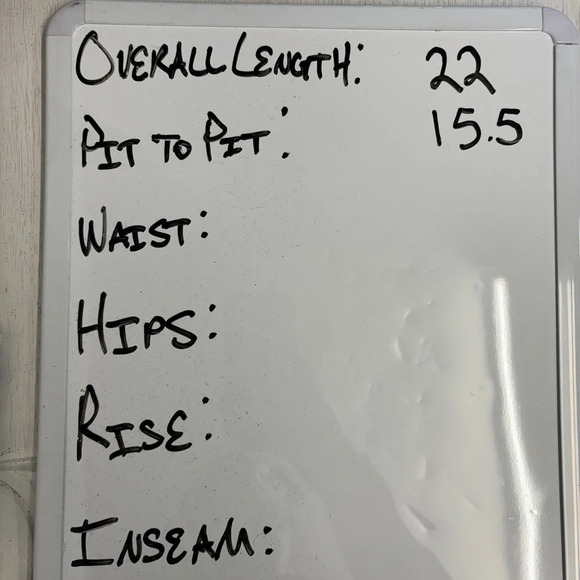 OVERALL LENGTH: 22
PIT TO PIT: 15.5
WAIST:
HIPS:
RISE:
INSEAM: